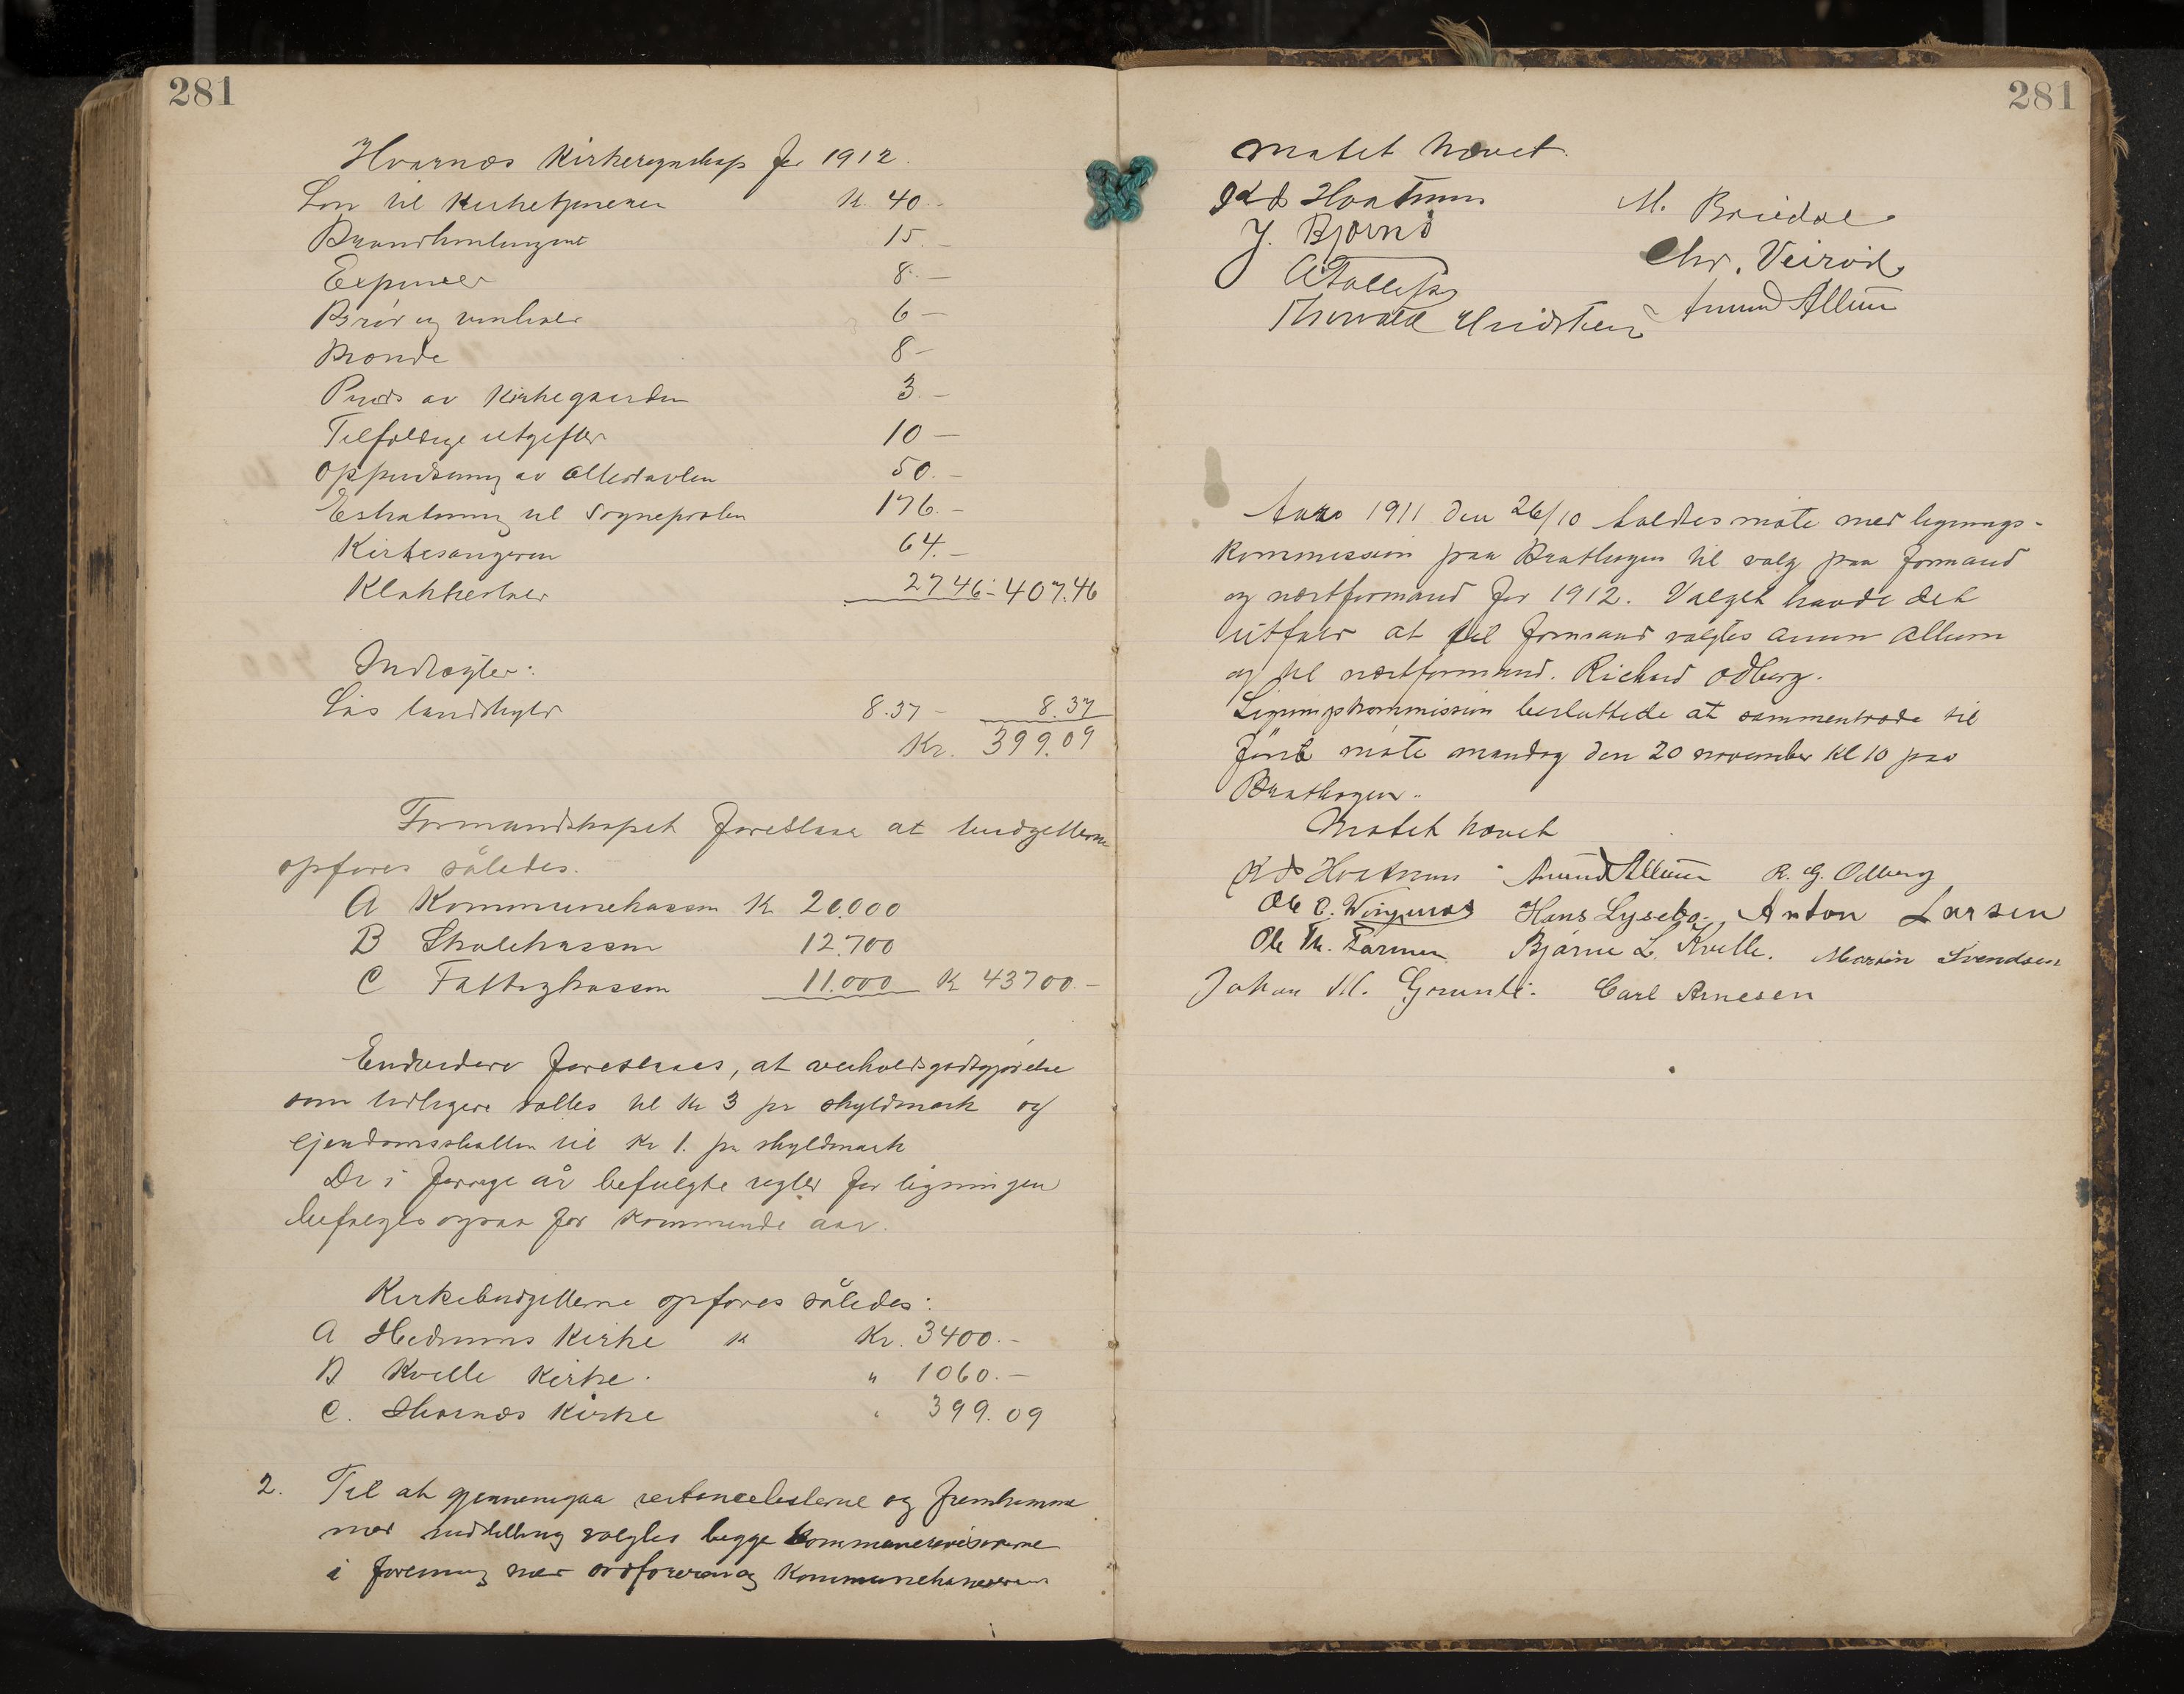 281
Hvarnæs Kirkeregnskap for 1912.
Løn til Kirketjeneren K. 40.-
Brandkontingent 15.-
Expenser 8.-
Brød og vin 6-
Brænde 8-
Puds av Kirkegaarden 3.-
Tilfældige utgifter 10-
Oppudsning av Altertavlen 50.-
Erstatning til Sognepresten 176.-
Kirkesangeren 64.-
Klokkertold 27.46 - 407.46
Indtægter:
Løs landskyld 8.37 - 8.37
Kr. 399.09
Formandskapet foreslaar at budgetterne
opføres således.
A Kommunekassen K 20,000
B Skolekassen 12.700
C Fattigkassen 11.000 K 43700.-
Endvidere foreslaaes, at veiholdsgodtgjørelse
som tidligere sættes til Kr 3 pr skyldmark og
ejendomsskatten til Kr 1. pr skyldmark
De i forrige år befulgte regler for ligningen
befølges ogsaa for Kommende aar.
Kirkebudgetterne opføres således:
A Hedrums Kirke K Kr. 3400.-
B Kvelle Kirke. " 1060.-
C. Hvarnæs Kirke " 399.09
2. Til at gjennemgaa restancelisterne og fremkomme
med indstilling valgtes begge Kommunerevisorerne
i forening med ordføreren og Kommunekassereren
281
Møtet hævet.
M. Bredal
J. Bjørnø
Chr. Veirød
Amund Allum
Aaro 1911 den 26/10 holdtes møte med lignings-
kommissionen paa Brathagen til valg paa formand
og næstformand for 1912. Valget havde det
utfald at til formand valgtes Amun Allum
og til næstformand. Richard Odberg.
Ligningskommission besluttede at sammentræde til
første møte mandag den 20 november kl 10 paa
Brathagen.
Møtet hævet
Amund Allum R. G. Odberg
Ole O. Hans Lysebo. Anton Larsen
Ole Th. Farmen Bjarne L. Kvelle. Martin Svendsen
Johan M. Carl Arnesen